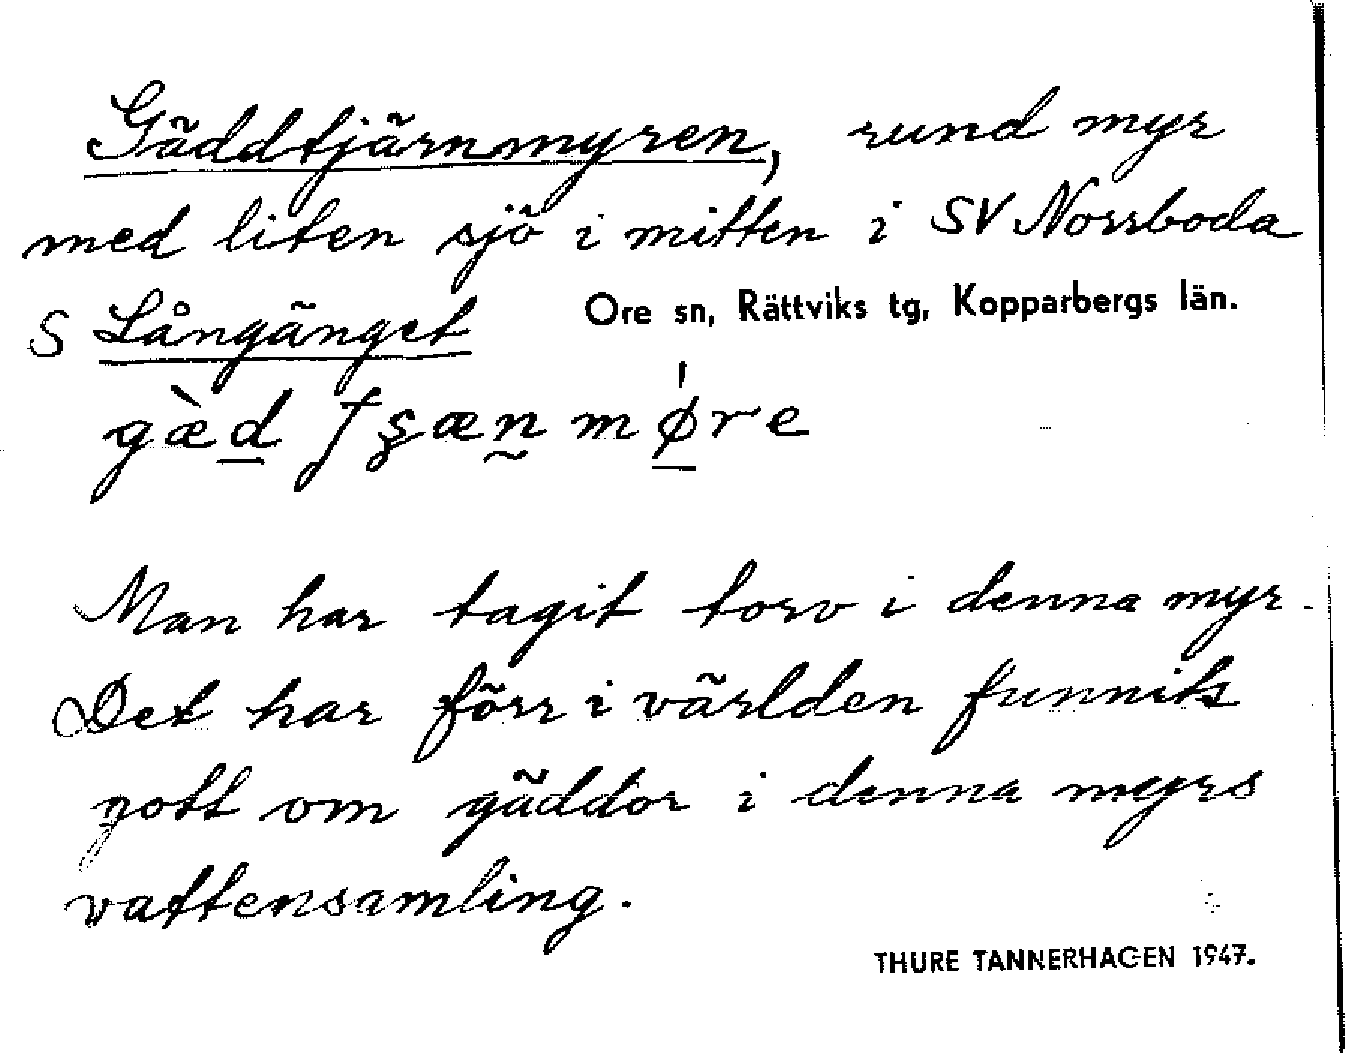 Gäddtjärnmyren, rund myr
med liten sjö i mitten i SV Norrboda
S Långänget Ore sn, Rättviks tg, Kopparbergs län.
gæ̀d ʃʂæn̰ mø̱re
Man har tagit torv i denna myr.
Det har förr i världen funnits
gott om gäddor i denna myrs
vattensamling.
THURE TANNERHAGEN 1947.